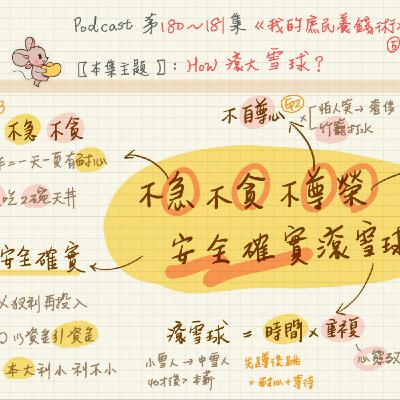 Podcast 第180~181集《我的庶民養錢術》
【本集主題】: How 滾大雪球?
不自尊心
EP2
怕人笑→奢侈
竹籃打水
不急 不貪
一天一頁有耐心
吃2碗天丼
不急不貪不尊榮
安全確實滾雪球
安全確實
獲利再投入
以資產引資產
本大利小利不小
滾雪球 = 時間 × 重複
小雪人→中雪人
40才後>本薪
先蹲後跳
=耐心+等待
心態